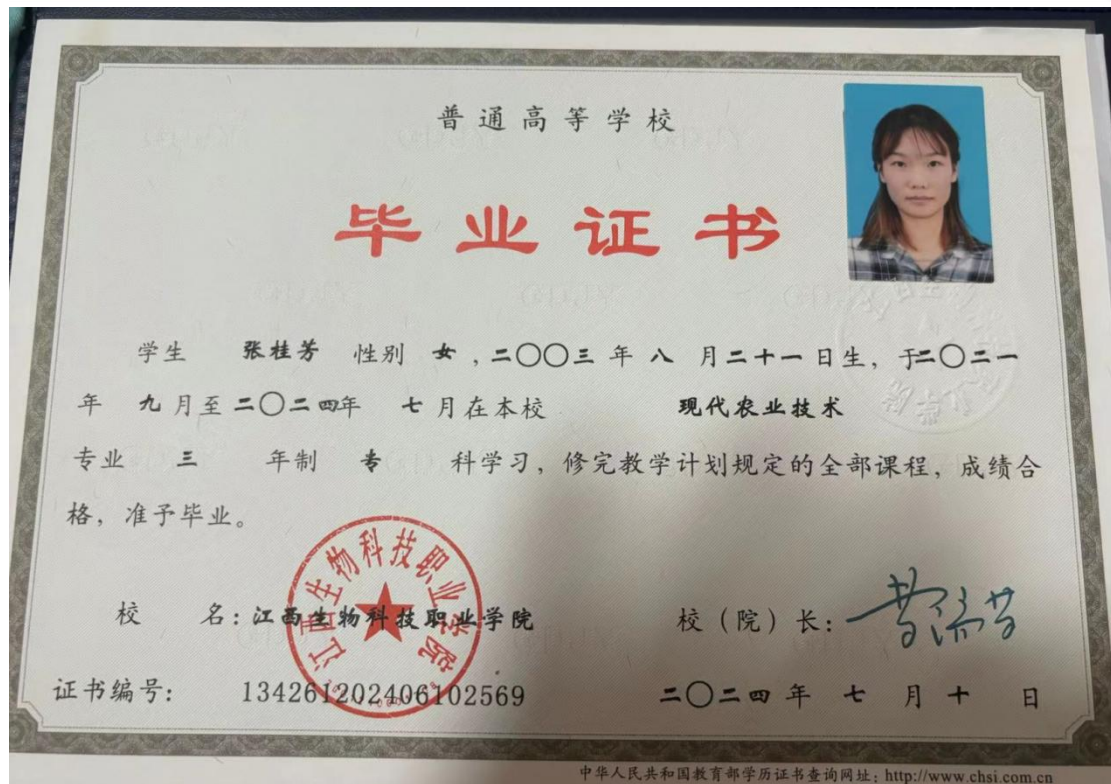 普通高等学校
毕业证书
学生 张桂芳 性别 女，二〇〇三 年 八 月二十一日生，于二〇二一
年 九月至二〇二四年 七月在本校 现代农业技术
专业 三 年制 专 科学习，修完教学计划规定的全部课程，成绩合
格，准予毕业。
江西生物科技职业学院
校 名：江西生物科技职业学院 校（院）长：
证书编号： 134261202406102569 二〇二四 年 七 月 十 日
中华人民共和国教育部学历证书查询网址：http://www.chsi.com.cn